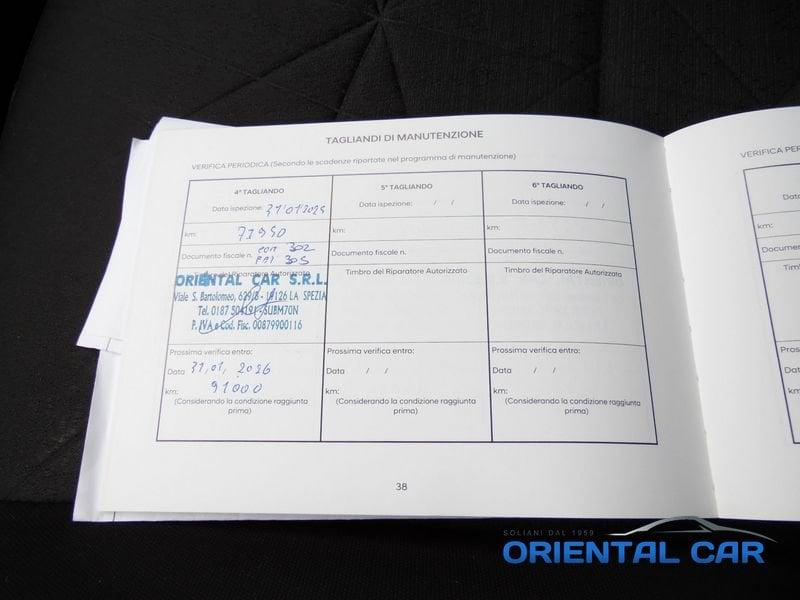 TAGLIANDI DI MANUTENZIONE
VERIFICA PERIODICA (Secondo le scadenze riportate nel programma di manutenzione)
4° TAGLIANDO
Data ispezione: 31/01/2025
km:
Documento fiscale n. 302
305
ORIENTAL CAR S.R.L.
Viale S. Bartolomeo, 629/B - 19126 LA SPEZIA
Tel. 0187 504191 - SUBM70N
P. IVA e Cod. Fisc. 00879900116
Prossima verifica entro:
Data 31/01/2026
km: 91000
(Considerando la condizione raggiunta
prima)
5° TAGLIANDO
Data ispezione: / /
km:
Documento fiscale n.
Timbro del Riparatore Autorizzato
Prossima verifica entro:
Data / /
km:
(Considerando la condizione raggiunta
prima)
6° TAGLIANDO
Data ispezione: / /
km:
Documento fiscale n.
Timbro del Riparatore Autorizzato
Prossima verifica entro:
Data / /
km:
(Considerando la condizione raggiunta
prima)
38
VERIFICA
km:
SOLIANI DAL 1959
ORIENTAL CAR